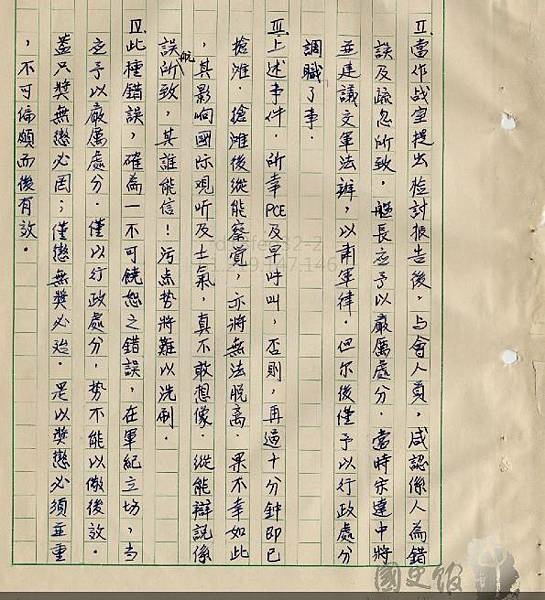 II.當作战室提出检討报告後，与會人員，咸認係人為錯
誤及疏忽所致，艦長应予以嚴厲處分．當時宋達中將
並建議交軍法辦，以肅軍律．但尔後僅予以行政處分
調職了事．
III.上述事件，所幸PCE及早呼叫，否則，再過十分鐘即已
搶灘．搶灘後縱能察覚，亦將無法脫离．果不幸如此
，其影响國际观听及士氣，真不敢想像．縱能辯説係
航誤所致，其誰能信！污点势將難以洗刷．
IV.此種錯誤，確為一不可饒恕之錯誤，在軍紀立场，当
应予以嚴厲處分．僅以行政處分，势不能以儆後效．
蓋只獎無懲必罔；僅懲無獎必殆．是以獎懲必須並重
，不可偏頗而後有效．
國史館